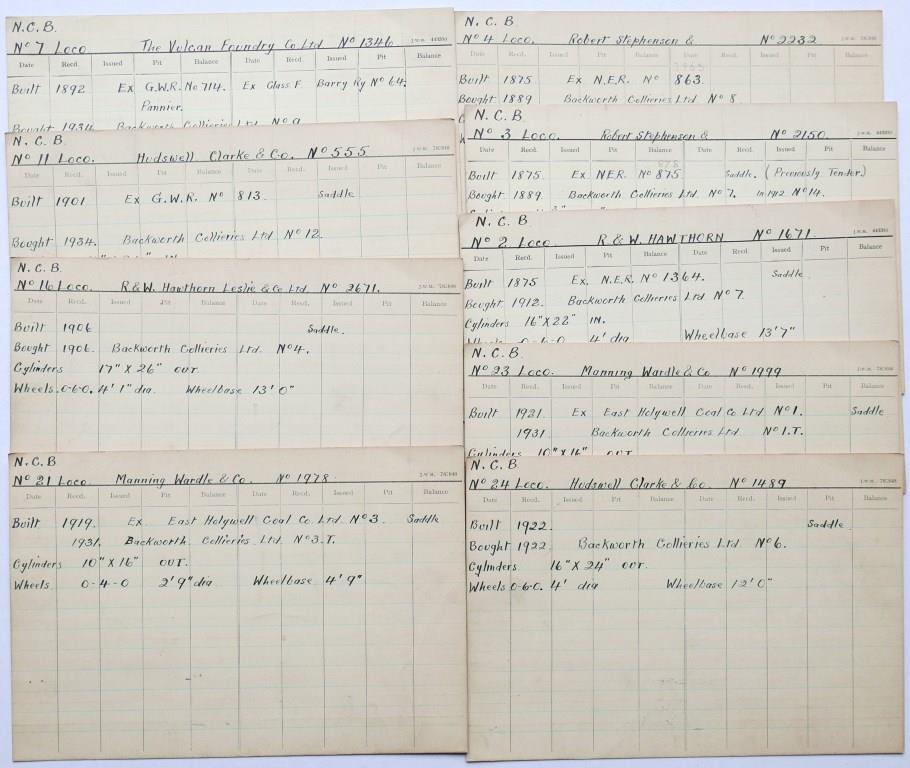 N.C.B
No 7 Loco. The Vulcan Foundry Co Ltd No 1346
Date Recd. Issued Pit Balance Date Recd. Issued Pit Balance
Built 1892 Ex G.W.R. No 714. Ex Glass F Barry Ry No 64.
Pannier.
Bought 1934 Backworth Collieries Ltd No 9
N.C.B.
No 11 Loco. Hudswell Clarke & Co. No 555
Date Recd. Issued Pit Balance Date Recd. Issued Pit Balance
Built 1901 Ex G.W.R. No 813. Saddle
Bought 1934. Backworth Collieries Ltd No 12.
N.C.B.
No 16 Loco. R&W. Hawthorn Leslie & Co Ltd. No 2671.
Date Recd. Issued Pit Balance Date Recd. Issued Pit Balance
Built 1906 Saddle.
Bought 1906. Backworth Collieries Ltd. No 4.
Cylinders 17" X 26" OUT.
Wheels. 0-6-0. 4' 1" dia. Wheelbase 13' 0"
N.C.B
No 21 Loco. Manning Wardle & Co. No 1978.
Date Recd. Issued Pit Balance Date Recd. Issued Pit Balance
Built 1919. Ex East Holywell Coal Co. Ltd. No 3. Saddle
1931. Backworth Collieries Ltd. No 3.T.
Cylinders 10" X 16" OUT.
Wheels 0-4-0 2' 9" dia Wheelbase 4' 9"
N.C.B
No 4 Loco. Robert Stephenson & No 2232
Date Recd. Issued Pit Balance Date Recd. Issued Pit Balance
Built 1875 Ex N.E.R. No 863.
Bought 1889 Backworth Collieries Ltd No 8
N.C.B.
No 3 Loco. Robert Stephenson & No 2150.
Date Recd. Issued Pit Balance Date Recd. Issued Pit Balance
Built 1875. Ex NER. No 875 Saddle. (Previously Tender.)
Bought 1889. Backworth Collieries Ltd. No 7. in 1912 No 14.
N.C.B
No 2 Loco. R & W. HAWTHORN No 1671.
Date Recd. Issued Pit Balance Date Recd. Issued Pit Balance
Built 1875 Ex. N.E.R. No 1364. Saddle
Bought 1912. Backworth Collieries Ltd No 7.
Cylinders 16" X 22" IN.
Wheels 0-6-0 4' dia Wheelbase 13' 7"
N.C.B.
No 23 Loco. Manning Wardle & Co No 1999
Date Recd. Issued Pit Balance Date Recd. Issued Pit Balance
Built 1921. Ex East Holywell Coal Co Ltd No 1. Saddle
1931 Backworth Collieries Ltd No 1.T.
Cylinders 10" X 16" OUT
N.C.B
No 24 Loco. Hudswell Clarke & Co. No 1489
Date Recd. Issued Pit Balance Date Recd. Issued Pit Balance
Built 1922. Saddle
Bought 1922. Backworth Collieries Ltd. No 6.
Cylinders 16" X 24" OUT.
Wheels 0-6-0. 4' dia Wheelbase 12' 0"